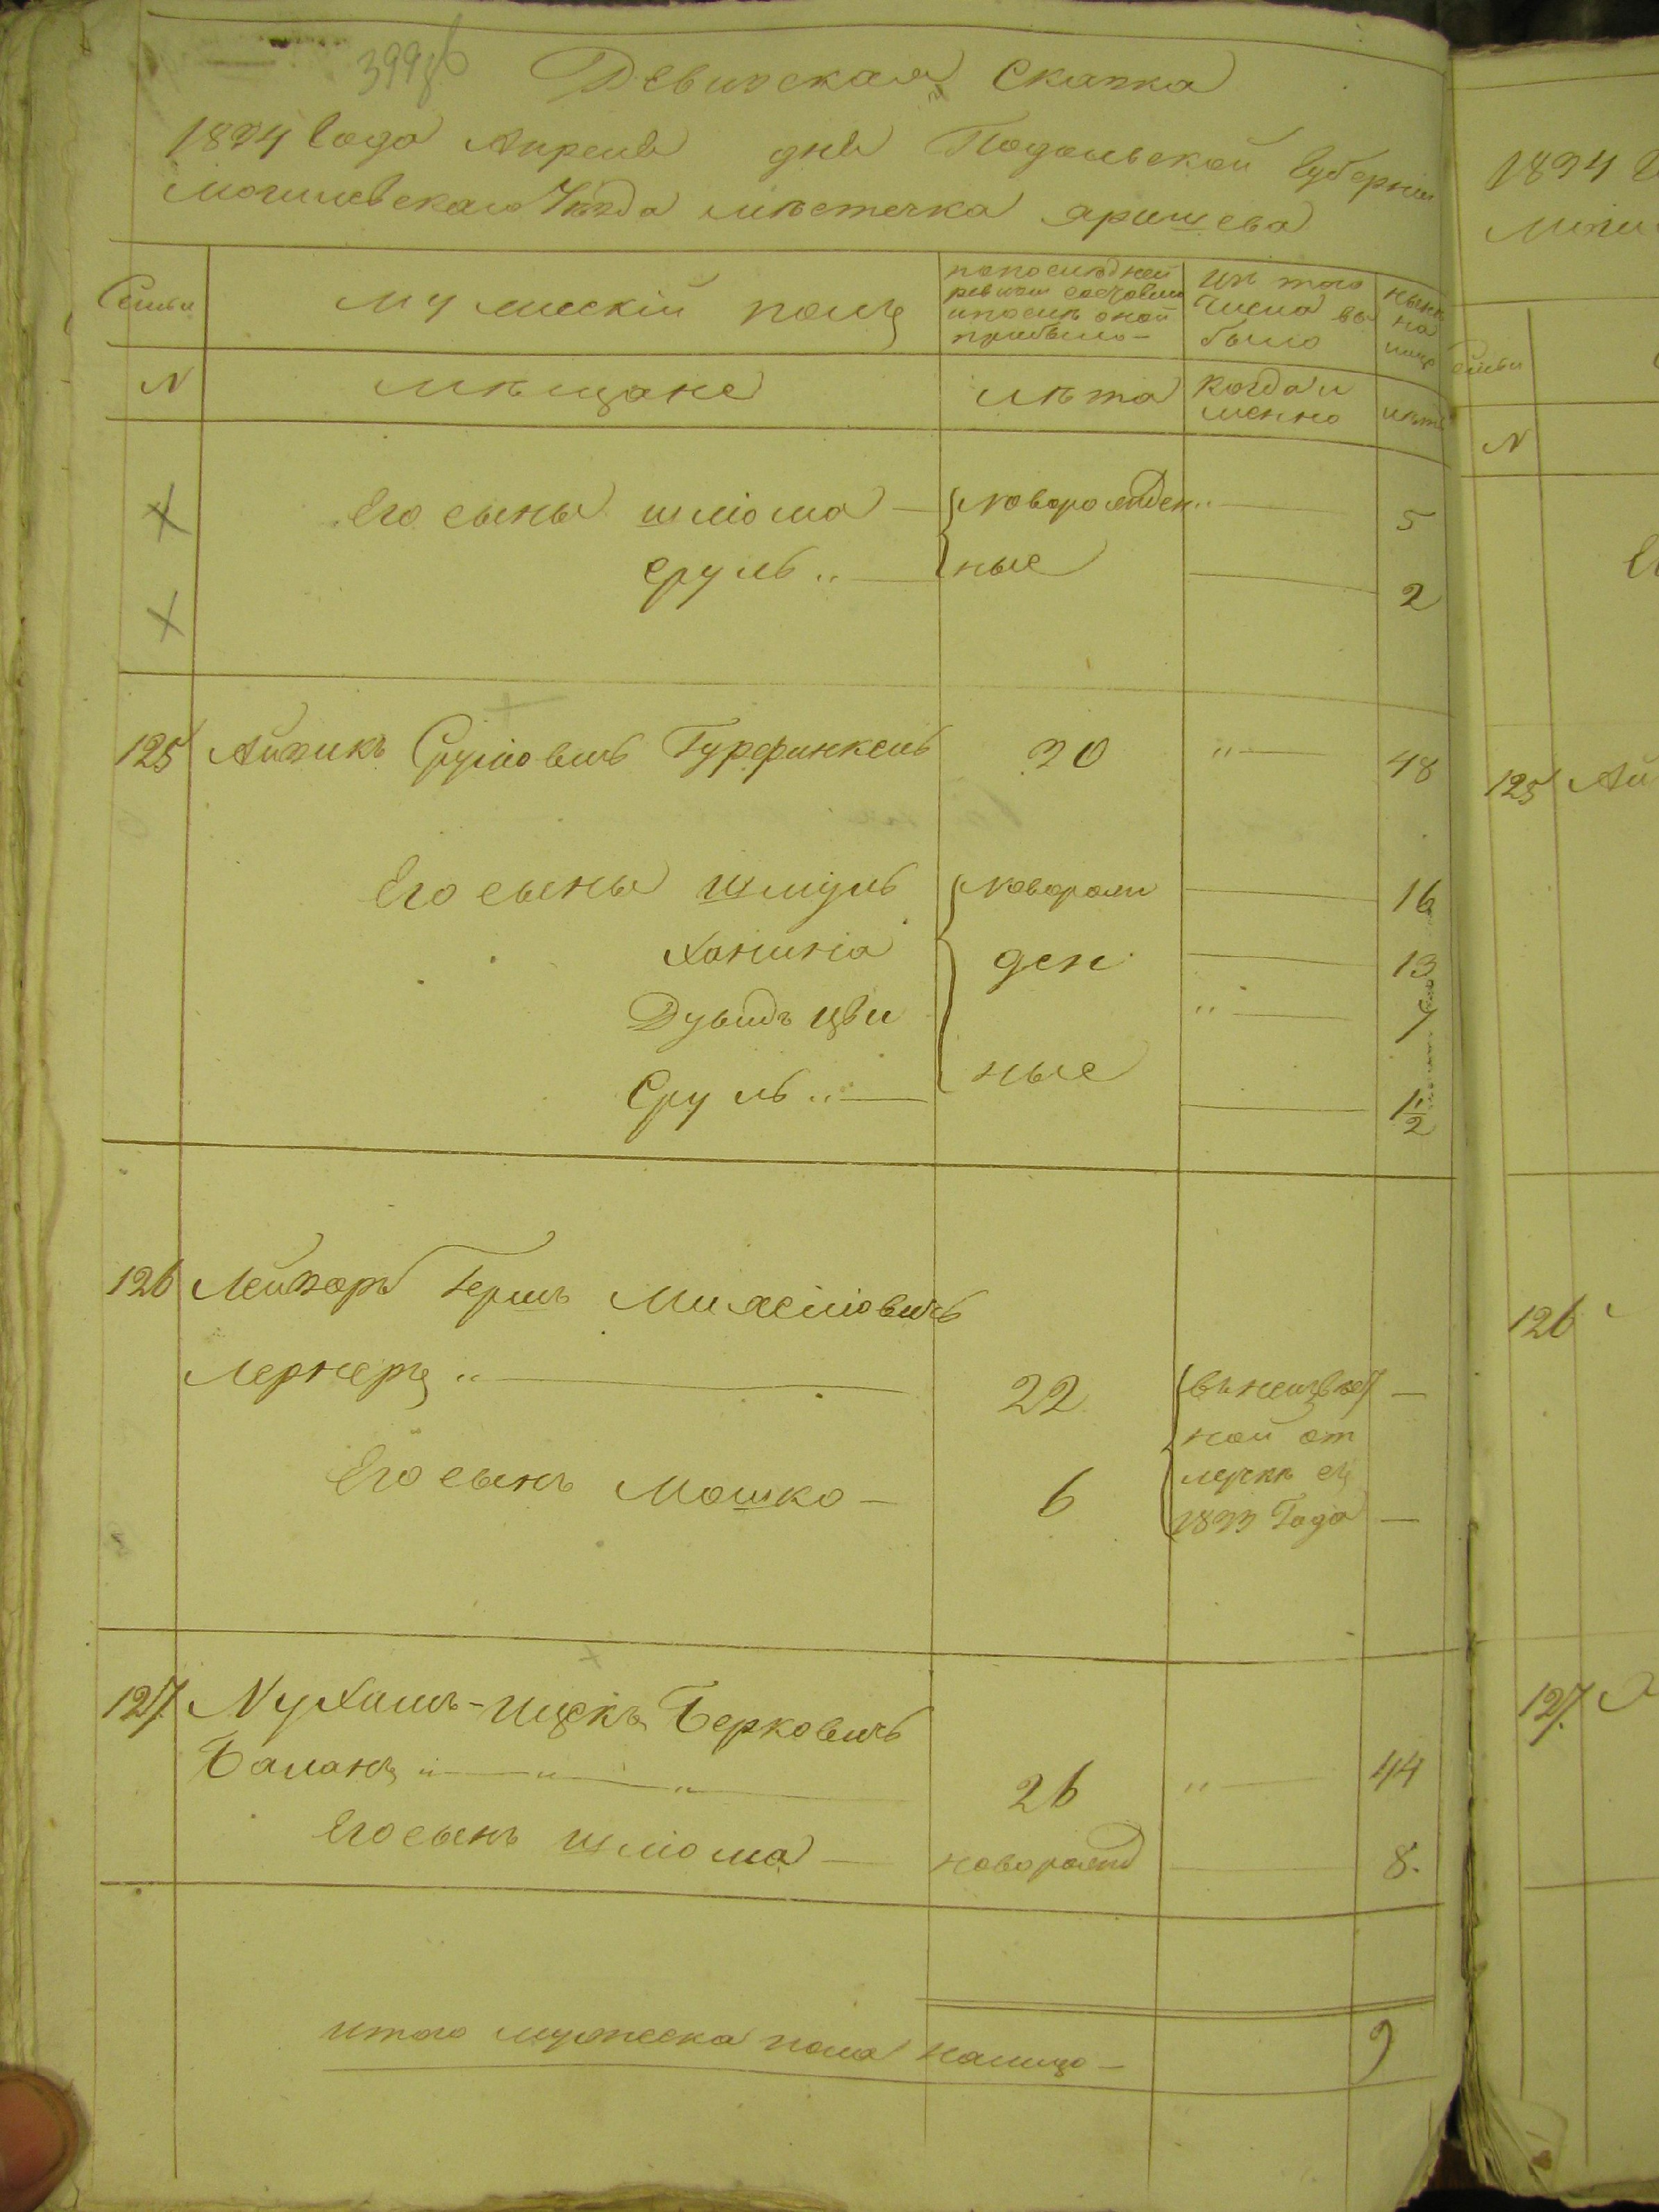 399об
Ревизская Сказка
1834 Года Апреля дня Подольской Губернии
Могилевскаго Уезда местечка Яришева
Семьи
Мужескій полъ
по последней
ревизіи состояло
и после оной
прибыло
Изъ того
числа вы
было
ныне
на
лице
N
мещане
лета
когда и
менно
лета
Его сыны Шліома новорожден 5
Сруль ные 2
125 Айзикъ Сруліовичъ Гурфинкель 30 48
Его сыны Шмуль новорож 16
Ханинiа ден 13
Дувидъ Цви 9
Сруль ные 1 1/2
126 Лейзоръ Гершъ Михеліовичъ
Лернеръ 22 въ неизвест
ной от
Его сынъ Мошко 6 лучке съ
1833 Года
127 Нухимъ-Ицекъ Берковичъ
Баланъ 26 44
Его сынъ Шліома новорожд 8
итого мужеска пола налицо 9
1834
Семьи
N
125 Ай
126
127